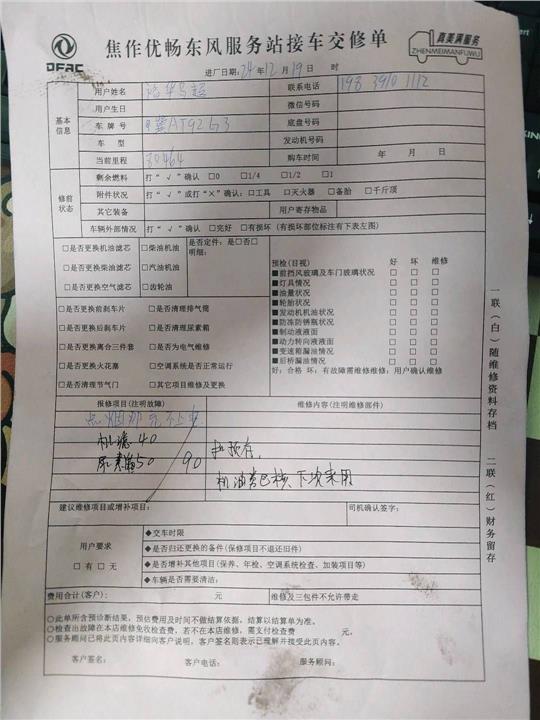 DFAC
焦作优畅东风服务站接车交修单
真美满服务
ZHENMEIMANFUWU
进厂日期: 24年12月19日 时
基本信息
用户姓名
联系电话 198 3910 1112
用户生日 微信号码
车牌号 冀AT92G3 底盘号码
车型 发动机号码
当前里程 80464 购车时间 年 月 日
修前状态
剩余燃料 打“√”确认 □0 □1/4 □1/2 □1
附件状况 打“√”或打“×”确认:□工具 □灭火器 □备胎 □千斤顶
其它装备 用户寄存物品
车辆外部情况 打“√”确认 □完好 □有损坏(有损坏部位标注有下表左图)
□是否更换机油滤芯 □柴油机油 是否定件:是□否□
明细:
□是否更换柴油滤芯 □汽油机油
□是否更换空气滤芯 □齿轮油
预检(目视) 好 坏 维修
■前挡风玻璃及车门玻璃状况 □ □ □
■灯具情况 □ □ □
■油量状况 □ □ □
■轮胎状况 □ □ □
■发动机机油状况 □ □ □
■防冻防锈瓶状况 □ □ □
■制动液液面 □ □ □
■动力转向液液面 □ □ □
■变速箱漏油情况 □ □ □
■后桥漏油情况 □ □ □
好:合格 坏:有故障需维修维修:用户确认维修
□是否更换前刹车片 □是否清理排气筒
□是否更换后刹车片 □是否清理尿素箱
□是否更换离合三件套 □是否为电气维修
□是否更换火花塞 □空调系统是否正常运行
□是否清理节气门 □其它项目维修及更换
报修项目(注明故障) 维修内容(注明维修部件)
点烟那充不上电
机滤40
尿素箱50 90
机油费已核、下次来用
建议维修项目或增补项目: 司机确认签字:
用户要求
□有□无
◆交车时限
◆是否归还更换的备件(保修项目不退还旧件)
◆是否增补其他项目(保养、年检、空调系统检查、加装项目等)
◆车辆是否需要清洁:
费用合计(客户): 元 维修及三包件不允许带走
○此单所含预诊断结果,预估费用及时间不做结算依据,结算以结算单为准。
○检查出故障在本店维修免收检查费,若不在本店维修,需支付检查费 元。
○服务顾问已将此页内容详细向客户说明,客户签名则表示已理解并接受此页内容。
客户签名: 客户电话: 服务顾问:
一联(白)随维修资料存档 二联(红)财务留存